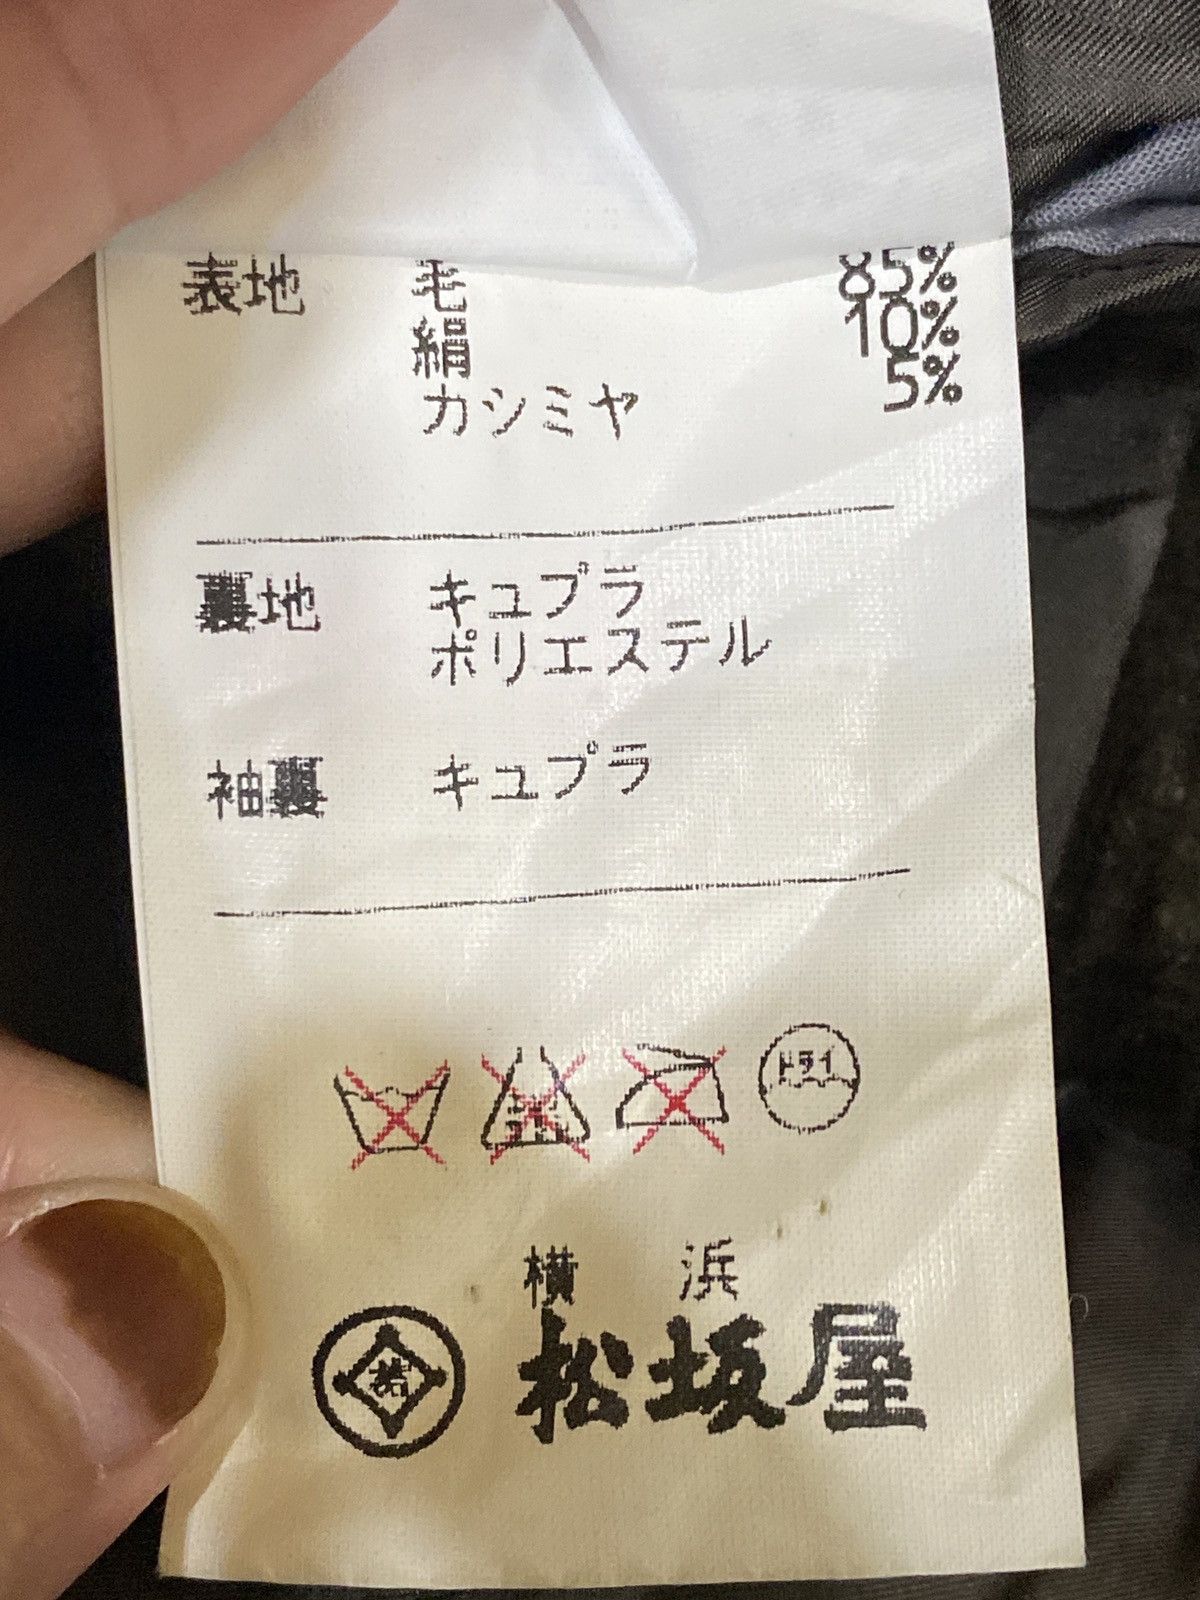 表地 毛 85%
絹 10%
カシミヤ 5%
裏地 キュプラ
ポリエステル
袖裏 キュプラ
ドライ
横浜
松坂屋